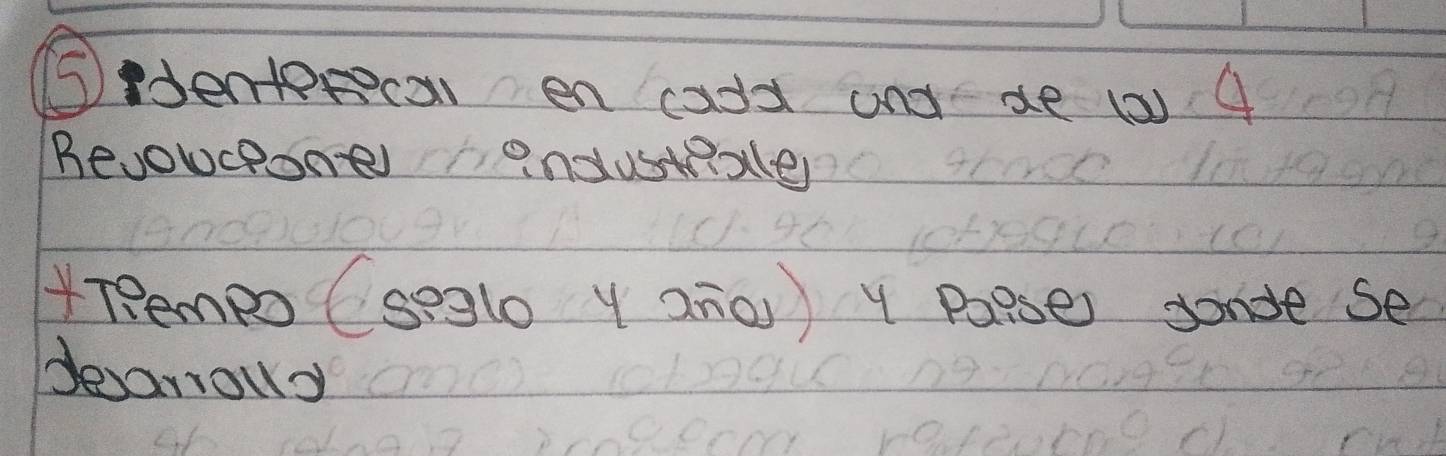 5 Identificar en cada una de las 4
Revoluciones industriales
* Tiempo (siglo y años) y países donde se
desarrolló